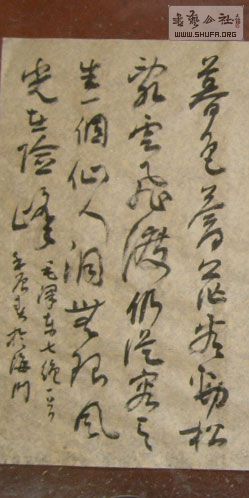 書藝公社
WWW.SHUFA.ORG
暮色蒼茫看勁松
亂雲飛渡仍從容天
生一個仙人洞無限風
光在險峰
毛澤東七絕一首
壬辰於海門